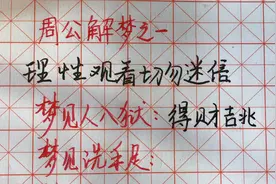 周公解梦之一
理性观看切勿迷信
梦见人入狱：得财吉兆
梦见洗手足：